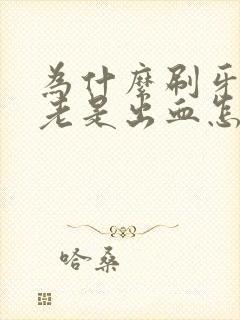 為什麼刷牙
老是出血怎
哈桑